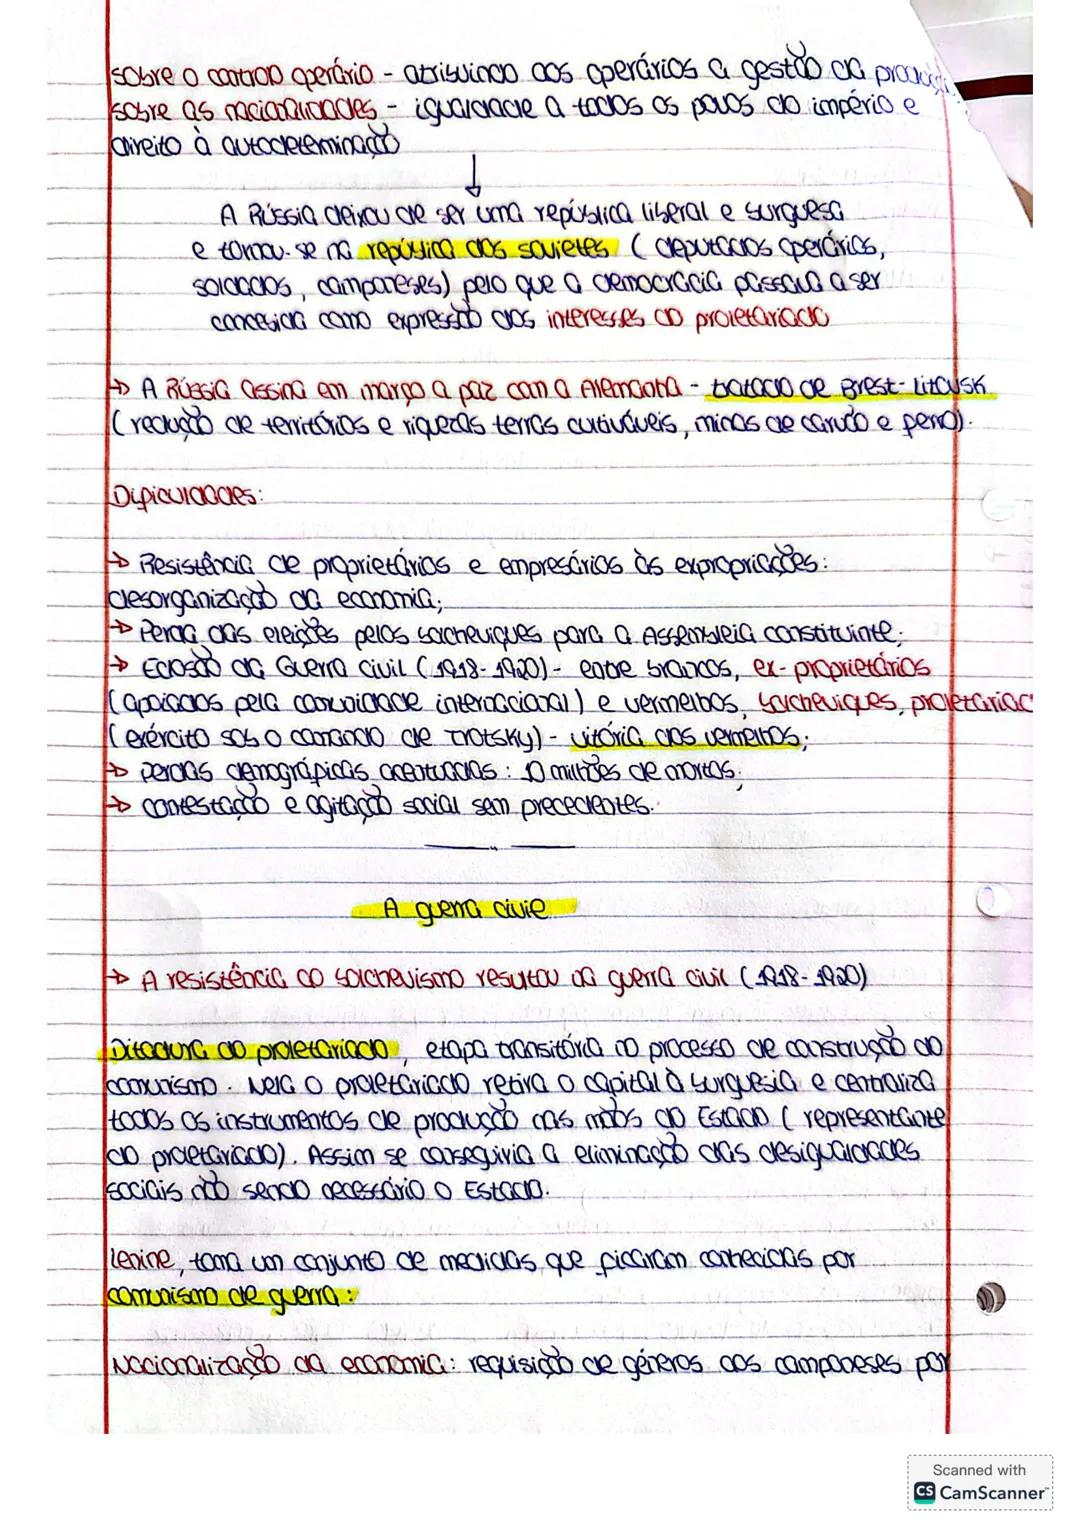 sobre o controlo operário - atribuindo aos operários a gestão da produção
sobre as nacionalidades - igualdade a todos os povos do império e
direito à autodeterminação
↓
A Rússia deixou de ser uma república liberal e burguesa
e tornou-se na república dos sovietes (deputados operários,
soldados, camponeses) pelo que a democracia passava a ser
concebida como expressão dos interesses do proletariado
→ A Rússia assina em março a paz com a Alemanha - tratado de Brest-Litovsk
(redução de territórios e riquezas terras cultiváveis, minas de carvão e ferro).
Dificuldades:
→ Resistência de proprietários e empresários às expropriações:
desorganização da economia;
→ Perda das eleições pelos bolcheviques para a Assembleia constituinte;
→ Eclosão da Guerra Civil (1918-1920) - entre brancos, ex-proprietários
(apoiados pela comunidade internacional) e vermelhos, bolcheviques, proletariad
(exército sob o comando de Trotsky) - vitória dos vermelhos;
→ perdas demográficas acentuadas: 10 milhões de mortos;
→ contestação e agitação social sem precedentes.
A guerra civil
→ A resistência ao bolchevismo resultou da guerra civil (1918-1920)
Ditadura do proletariado, etapa transitória no processo de construção do
comunismo. Nela o proletariado retira o capital à burguesia e centraliza
todos os instrumentos de produção nas mãos do Estado (representante
do proletariado). Assim se conseguiria a eliminação das desigualdades
sociais não sendo necessário o Estado.
Lenine, toma um conjunto de medidas que ficaram conhecidas por
comunismo de guerra:
Nacionalização da economia: requisição de géneros aos camponeses por
Scanned with
CS CamScanner